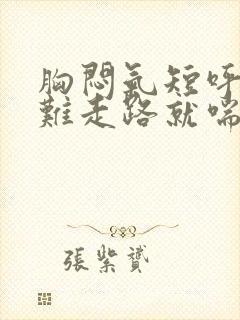 胸悶氣短呼
難走路就喘
張紫贇